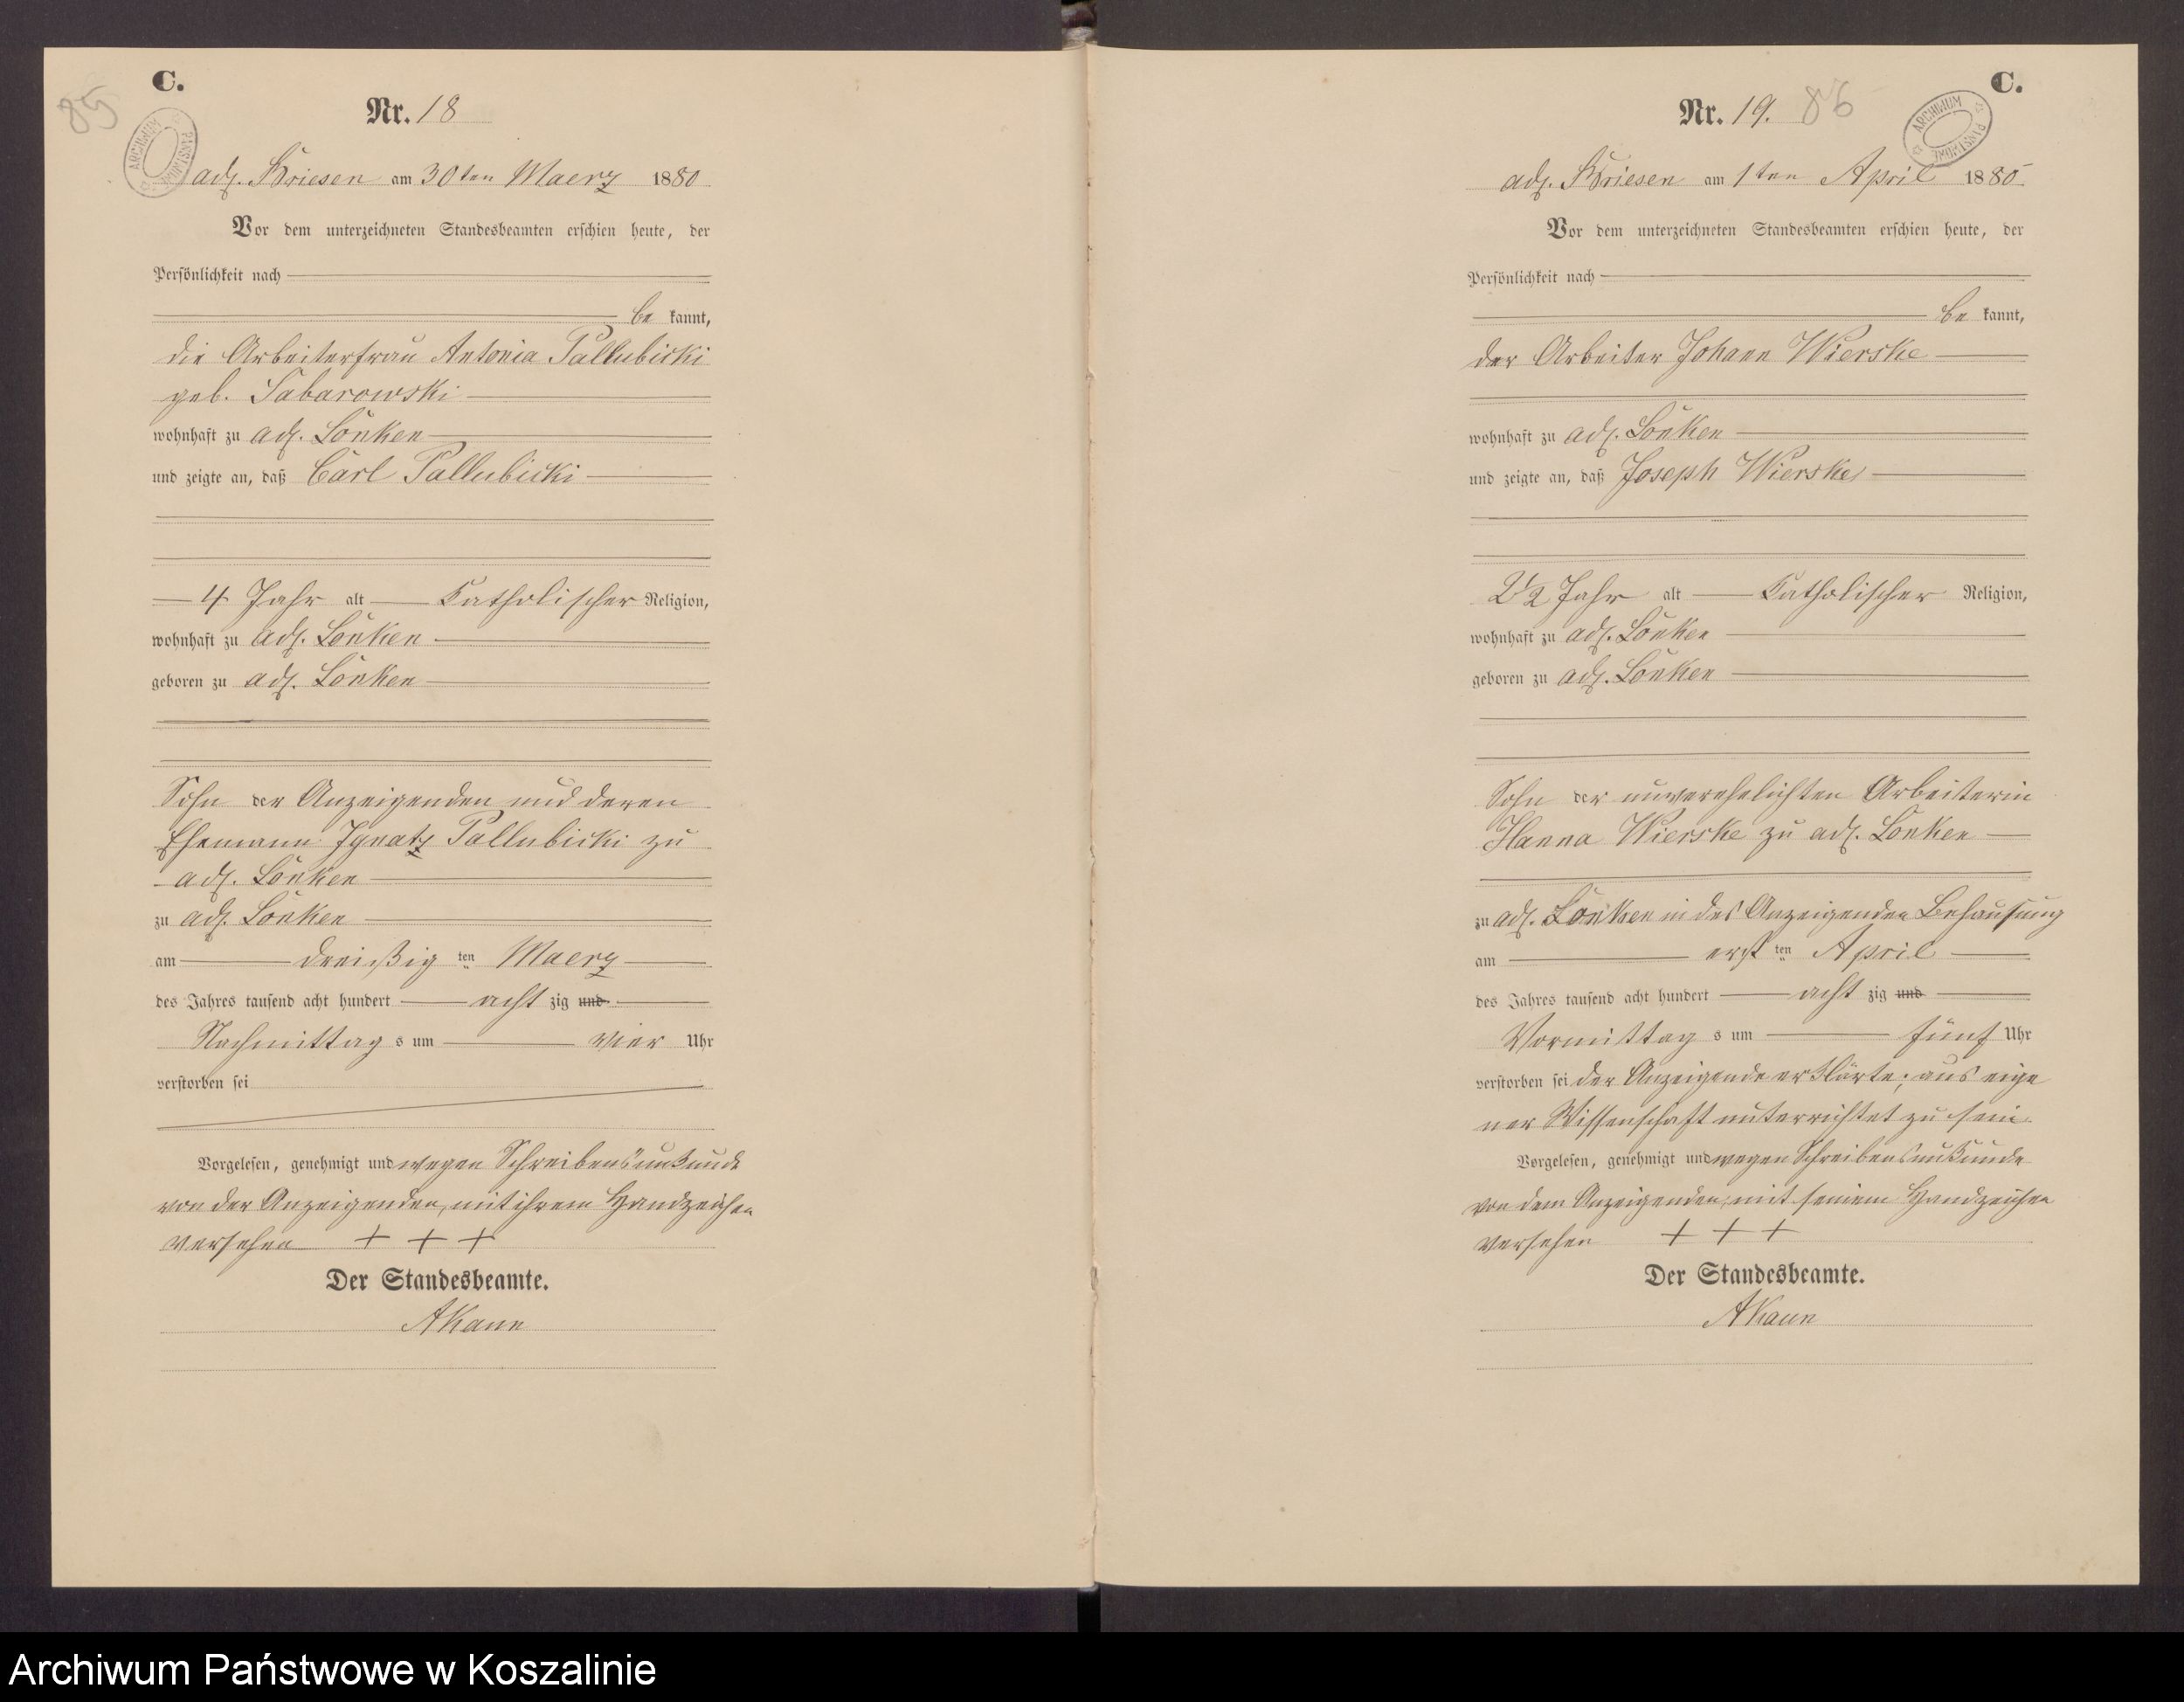 85
C.
Nr. 18
ARCHIWUM PAŃSTWOWE
adl. Briesen am 30ten Maerz 1880
Vor dem unterzeichneten Standesbeamten erschien heute, der
Persönlichkeit nach
be kannt,
die Arbeiterfrau Antonia Pallubicki
geb.
wohnhaft zu adl. Lonken
und zeigte an, daß Carl Pallubicki
4 Jahr alt Katholischer Religion,
wohnhaft zu adl. Lonken
geboren zu adl. Lonken
Sohn der Anzeigenden und deren
Ehemann Ignatz Pallubicki zu
adl. Lonken
zu adl. Lonken
am dreißig ten Maerz
des Jahres tausend acht hundert acht zig und
Nachmittag s um vier Uhr
verstorben sei
Vorgelesen, genehmigt und wegen Schreibensunkunde
von der Anzeigenden, mit ihrem Handzeichen
versehen + + +
Der Standesbeamte.
C.
Nr. 19. 86
ARCHIWUM PAŃSTWOWE
adl. Briesen am 1ten April 1880
Vor dem unterzeichneten Standesbeamten erschien heute, der
Persönlichkeit nach
be kannt,
der Arbeiter Johann Wierske
wohnhaft zu adl. Lonken
und zeigte an, daß Joseph Wierske
2 1/2 Jahr alt Katholischer Religion,
wohnhaft zu adl. Lonken
geboren zu adl. Lonken
Sohn der unverehelichten Arbeiterin
Hanna Wierske zu adl. Lonken
zu adl. Lonken in des Anzeigenden Behausung
am erst ten April
des Jahres tausend acht hundert acht zig und
Vormittag s um fünf Uhr
verstorben sei der Anzeigende erklärte, aus eige
ner Wissenschaft unterrichtet zu sein.
Vorgelesen, genehmigt und wegen Schreibensunkunde
von dem Anzeigenden, mit seinem Handzeichen
versehen + + +
Der Standesbeamte.
Archiwum Państwowe w Koszalinie